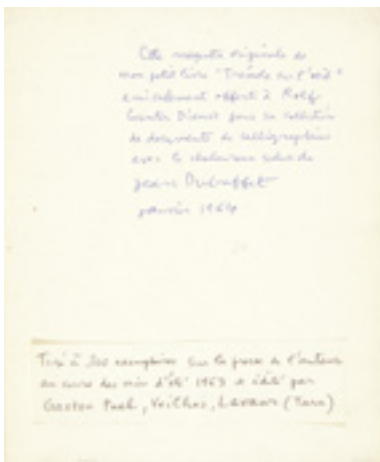 Cette maquette originale de
mon petit livre "Trémolo sur l'œil"
amicalement offerte à Rolf
Gunter Dienst pour sa collection
de documents de calligraphies
avec le chaleureux salut de
Jean Dubuffet
janvier 1964
Tiré à 200 exemplaires sur la presse de l'auteur
au cours des mois d'été 1963 et édité par
Gaston Puel, Veilhes, Lavaur (Tarn)